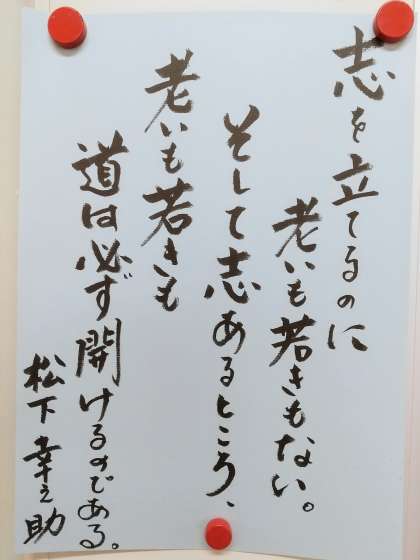 志を立てるのに
老いも若きもない。
そして志あるところ、
老いも若きも
道は必ず開けるのである。
松下幸之助